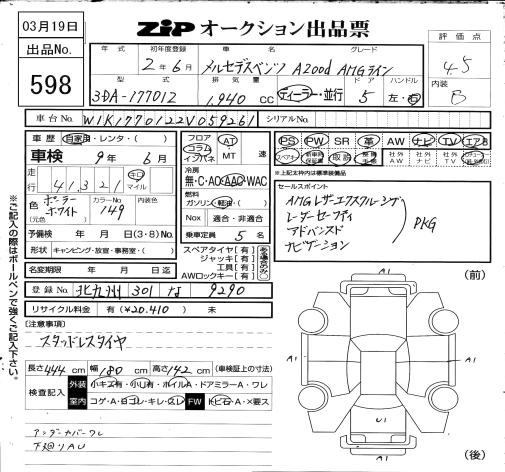 03月19日
ZiP オークション出品票
出品No.
598
年式 初年度登録 車名 グレード
2年6月 メルセデスベンツ A200d AMGライン
型式 排気量 ドア ハンドル
3DA-177012 1,940 cc ディーラー・並行 5 左・右
評価点
4.5
内装
B
車台No. W1K1770122V059261 シリアルNo.
車歴 自家用・レンタ・( )
車検 9年6月
走行 41,321 キロ マイル
色 ポーラーホワイト カラーNo. 149 内装色
(元色)
予備検 年 月 日(3・8)No.
形状 キャンピング・放宣・事務室・( )
名変期限 年 月 日迄
フロア コラム インパネ AT MT 速
冷房
無・C・AC・AAC・WAC
燃料
ガソリン・軽油・( )
Nox 適合・非適合
乗車定員 5名
スペアタイヤ[有]
ジャッキ[有]
工具[有]
AWロックキー[有]
PS PW SR 革 AW ナビ TV エアB
スペアキー 取説 社外AW 社外ナビ 社外TV
*上記太枠内は標準装備品
セールスポイント
AMGレザーエクスクルーシブ
レーダーセーフティ
アドバンスド
ナビゲーション
PKG
登録No. 北九州 301 な 9290
リサイクル料金 有(¥20,410) 未
[注意事項]
スタッドレスタイヤ
長さ444cm 幅180cm 高さ142cm (車検証上の寸法)
検査記入
外装 小キズ有・小U有・ホイルA・ドアミラーA・ワレ
室内 コゲ・A・ヨゴレ・キレ・スレ FW トビ石・A・×要ス
アンダーカバーワレ
下廻りAU
(前)
A1
A1
A1
U1
A1
(後)
※ご記入の際はボールペンで強くご記入下さい。